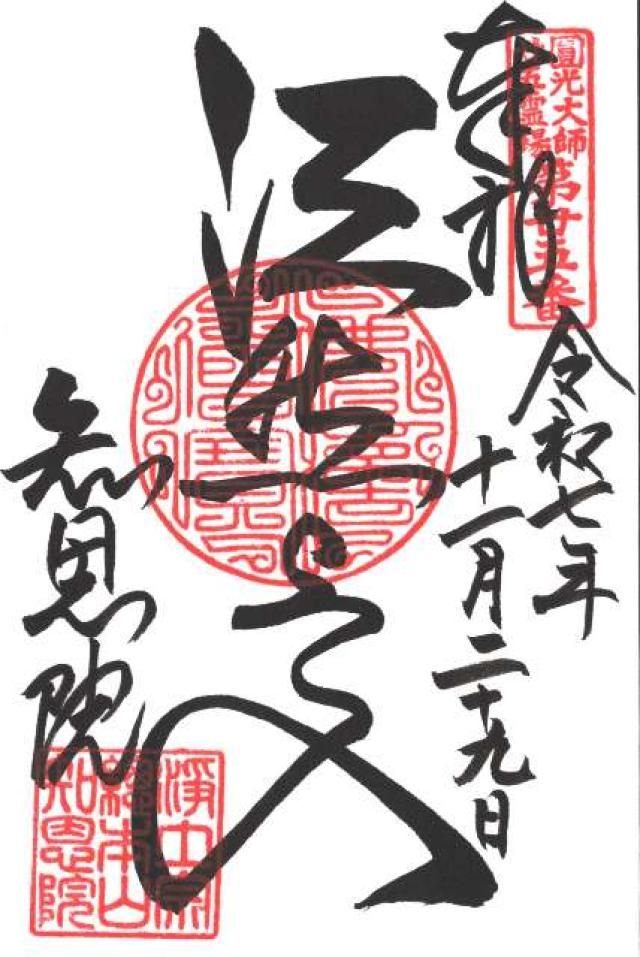 奉拝
圓光大師
廿五霊場
第廿五番
令和七年
十一月二十九日
法然上人
知恩院
浄土宗
總本山
知恩院